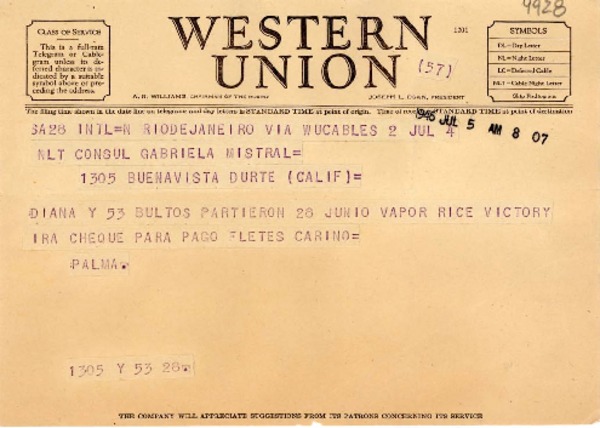 9928
CLASS OF SERVICE
This is a full-rate
Telegram or Cable-
gram unless its de-
ferred character is in-
dicated by a suitable
symbol above or pre-
ceding the address.
WESTERN
UNION
1201
(57)
A. N. WILLIAMS, CHAIRMAN OF THE BOARD
JOSEPH L. EGAN, PRESIDENT
SYMBOLS
DL=Day Letter
NL=Night Letter
LC=Deferred Cable
NLT=Cable Night Letter
Ship Radiogram
The filing time shown in the date line on telegrams and day letters is STANDARD TIME at point of origin. Time of receipt is STANDARD TIME at point of destination
SA28 INTL=N RIODEJANEIRO VIA WUCABLES 2 JUL 4
1946 JUL 5 AM 8 07
NLT CONSUL GABRIELA MISTRAL=
1305 BUENAVISTA DURTE (CALIF)=
DIANA Y 53 BULTOS PARTIERON 28 JUNIO VAPOR RICE VICTORY
IRA CHEQUE PARA PAGO FLETES CARINO=
PALMA.
1305 Y 53 28.
THE COMPANY WILL APPRECIATE SUGGESTIONS FROM ITS PATRONS CONCERNING ITS SERVICE